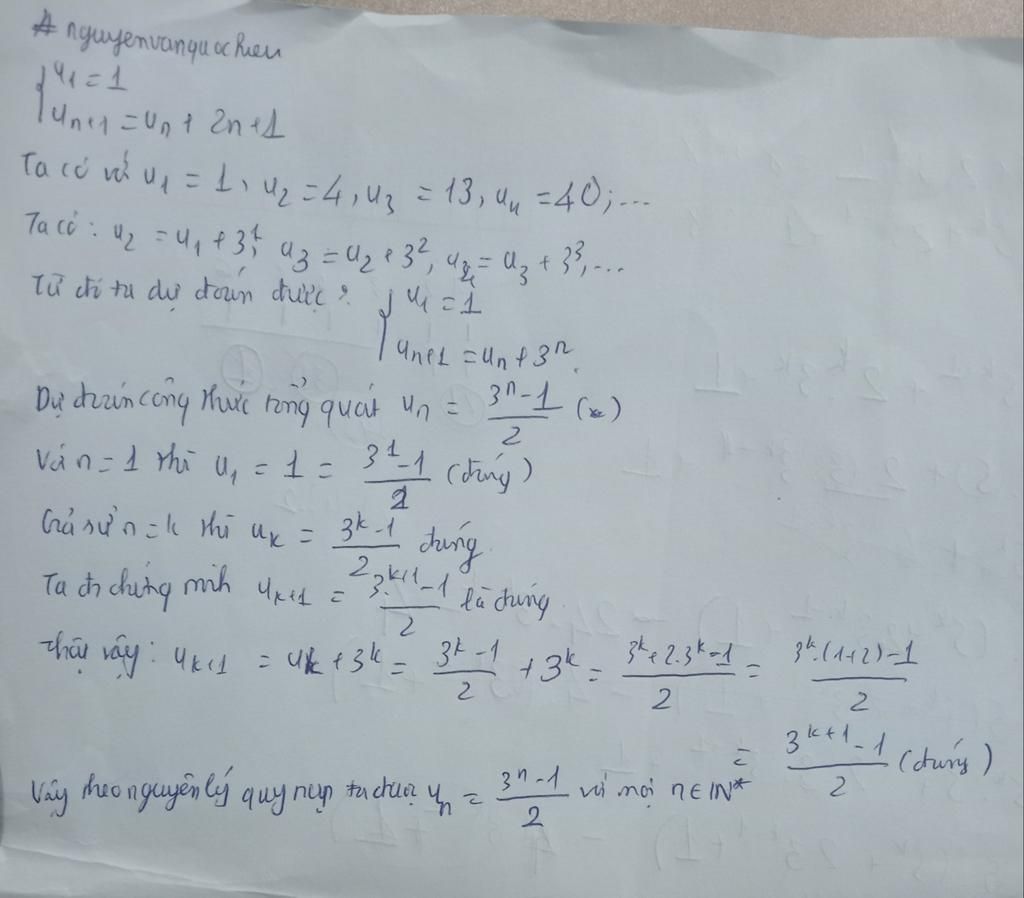 # nguyenvanquochieu
{ u1 = 1
un+1 = un + 2n+1
Ta có với u1 = 1, u2 = 4, u3 = 13, u4 = 40; ...
Ta có: u2 = u1 + 3^1, u3 = u2 + 3^2, u4 = u3 + 3^3, ...
Từ đó ta dự đoán được: { u1 = 1
un+1 = un + 3^n.
Dự đoán công thức tổng quát un = (3^n - 1)/2 (*)
Với n = 1 thì u1 = 1 = (3^1 - 1)/2 (đúng)
Giả sử n = k thì uk = (3^k - 1)/2 đúng.
Ta đi chứng minh uk+1 = (3^k+1 - 1)/2 là đúng.
Thật vậy: uk+1 = uk + 3^k = (3^k - 1)/2 + 3^k = (3^k + 2.3^k - 1)/2 = (3^k.(1+2) - 1)/2
= (3^k+1 - 1)/2 (đúng)
Vậy theo nguyên lý quy nạp ta được un = (3^n - 1)/2 với mọi n ∈ ℕ*